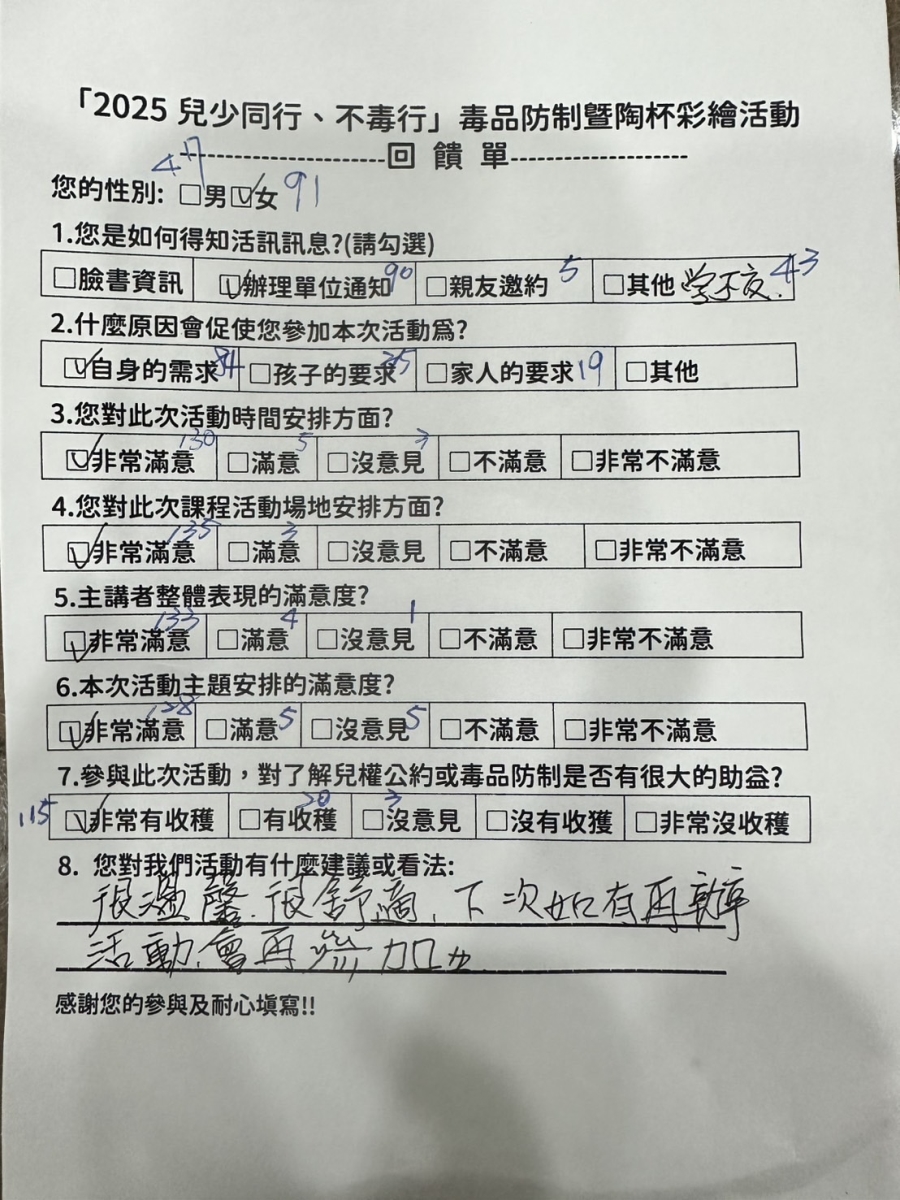 「2025 兒少同行、不毒行」毒品防制暨陶杯彩繪活動
--------------------回 饋 單--------------------
47
您的性別: □男 ☑女 91
1.您是如何得知活訊訊息?(請勾選)
□臉書資訊 ☑辦理單位通知 90 □親友邀約 5 □其他 学校 43
2.什麼原因會促使您參加本次活動為?
☑自身的需求 84 □孩子的要求 35 □家人的要求 19 □其他
3.您對此次活動時間安排方面?
☑非常滿意 130 □滿意 5 □沒意見 3 □不滿意 □非常不滿意
4.您對此次課程活動場地安排方面?
☑非常滿意 135 □滿意 3 □沒意見 □不滿意 □非常不滿意
5.主講者整體表現的滿意度?
☑非常滿意 133 □滿意 4 □沒意見 1 □不滿意 □非常不滿意
6.本次活動主題安排的滿意度?
☑非常滿意 128 □滿意 5 □沒意見 5 □不滿意 □非常不滿意
7.參與此次活動，對了解兒權公約或毒品防制是否有很大的助益?
115 ☑非常有收穫 □有收穫 20 □沒意見 3 □沒有收獲 □非常沒收穫
8. 您對我們活動有什麼建議或看法:
很溫馨.很舒適,下次如有再辦
活動.會再參加
感謝您的參與及耐心填寫!!